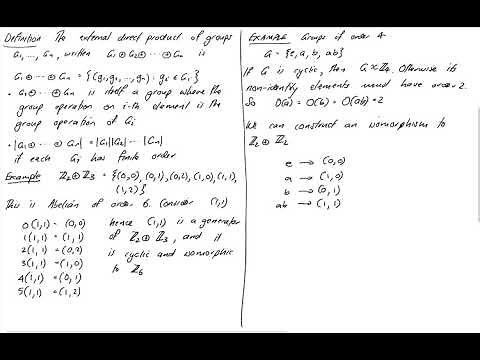 Definition The external direct product of groups
G₁, ..., Gₙ, written G₁ ⊕ G₂ ⊕ ··· ⊕ Gₙ is
G₁ ⊕ ··· ⊕ Gₙ = {(g₁, g₂, ..., gₙ) : gᵢ ∈ Gᵢ}
• G₁ ⊕ ··· ⊕ Gₙ is itself a group where the
group operation on i-th element is the
group operation of Gᵢ
• |G₁ ⊕ ··· ⊕ Gₙ| = |G₁||G₂| ··· |Gₙ|
if each Gᵢ has finite order
Example ℤ₂ ⊕ ℤ₃ = {(0,0), (0,1), (0,2), (1,0), (1,1),
(1,2)}
This is Abelian of order 6. Consider (1,1)
0(1,1) = (0,0) hence (1,1) is a generator
1(1,1) = (1,1) of ℤ₂ ⊕ ℤ₃, and it
2(1,1) = (0,2) is cyclic and isomorphic
3(1,1) = (1,0) to ℤ₆
4(1,1) = (0,1)
5(1,1) = (1,2)
EXAMPLE Groups of order 4
G = {e, a, b, ab}
If G is cyclic, then G ≈ ℤ₄. Otherwise its
non-identity elements must have order 2.
So O(a) = O(b) = O(ab) = 2
We can construct an isomorphism to
ℤ₂ ⊕ ℤ₂
e → (0,0)
a → (1,0)
b → (0,1)
ab → (1,1)